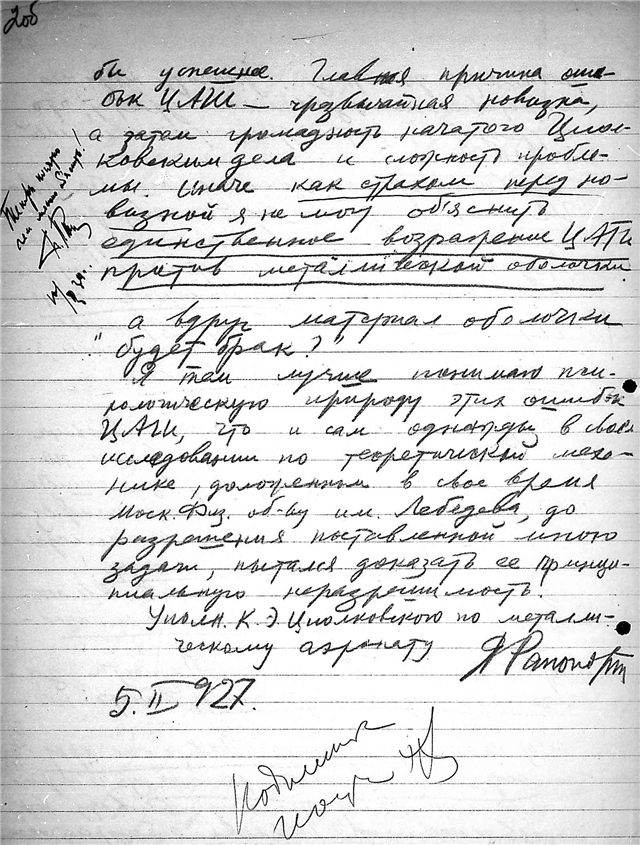 206
бы успешнее. Главная причина оши-
бок ЦАГИ – чрезвычайная новизна,
а затем громадность начатого Циол-
ковским дела и сложность пробле-
мы. Иначе как страхом перед но-
визной я не могу об'яснить
единственное возражение ЦАГИ
против металлической оболочки:
"а вдруг материал оболочки
будет брак?"
Я тем лучше понимаю пси-
хологическую природу этих ошибок
ЦАГИ, что и сам однажды в своем
исследовании по теоретической меха-
нике, доложенном в свое время
Моск. Физ. об-ву им. Лебедева, до
разрешения поставленной мною
задачи, пытался доказать ее принци-
пиальную неразрешимость.
Уполн. К. Э. Циолковского по металли-
ческому аэронату
Я Рапопорт
5.II 927.